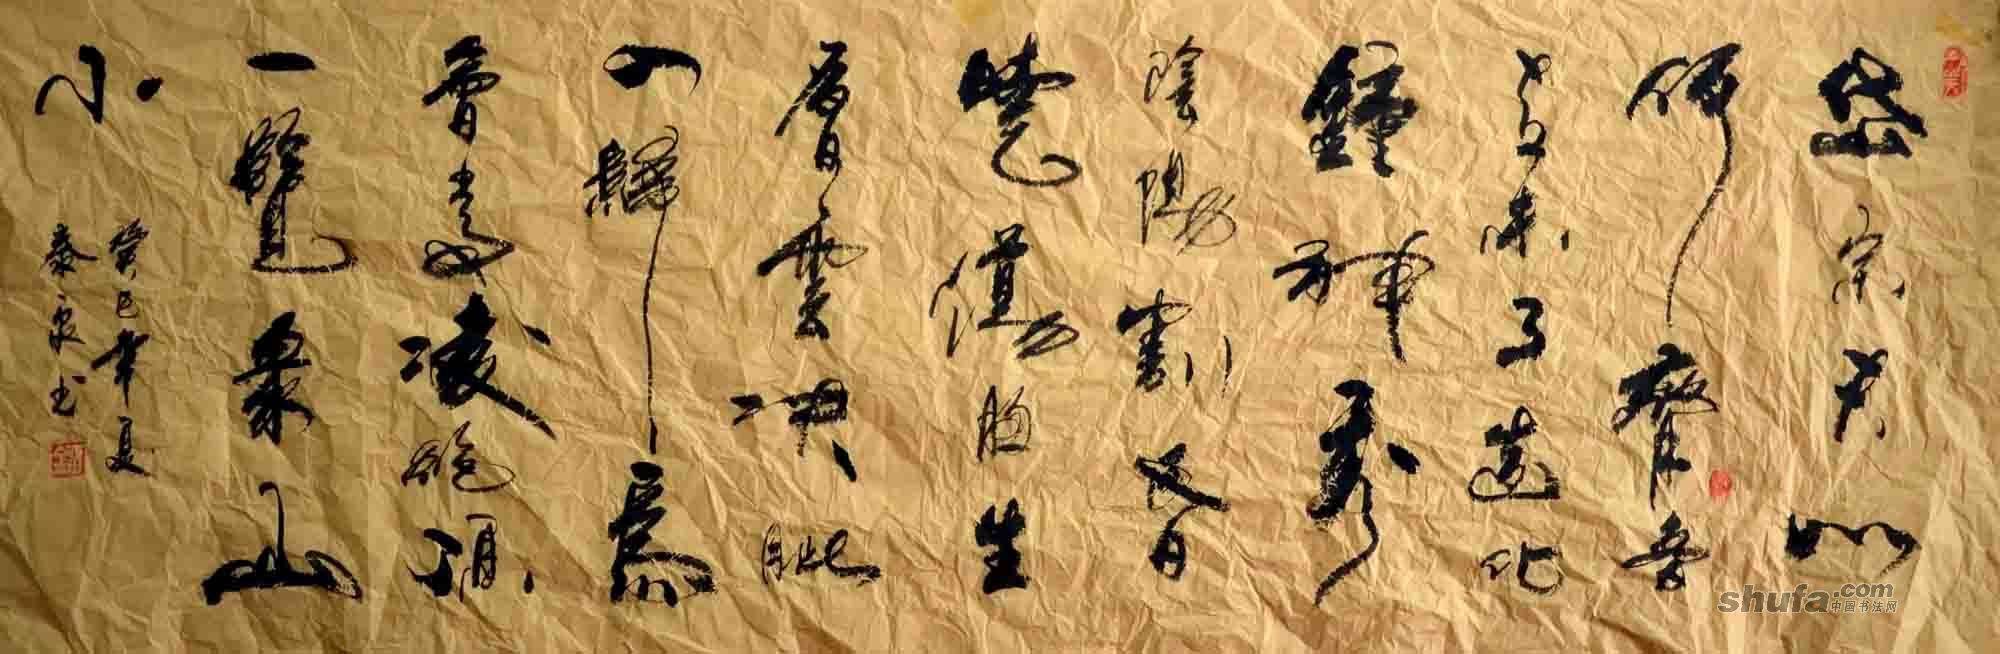 岱宗夫如
何齊魯
青未了造化
鐘神秀
陰陽割昏
曉蕩胸生
層雲决眦
入歸鳥
會當凌絕頂
一覽眾山
小
癸巳年夏
泰书
shufa.com
中国书法网